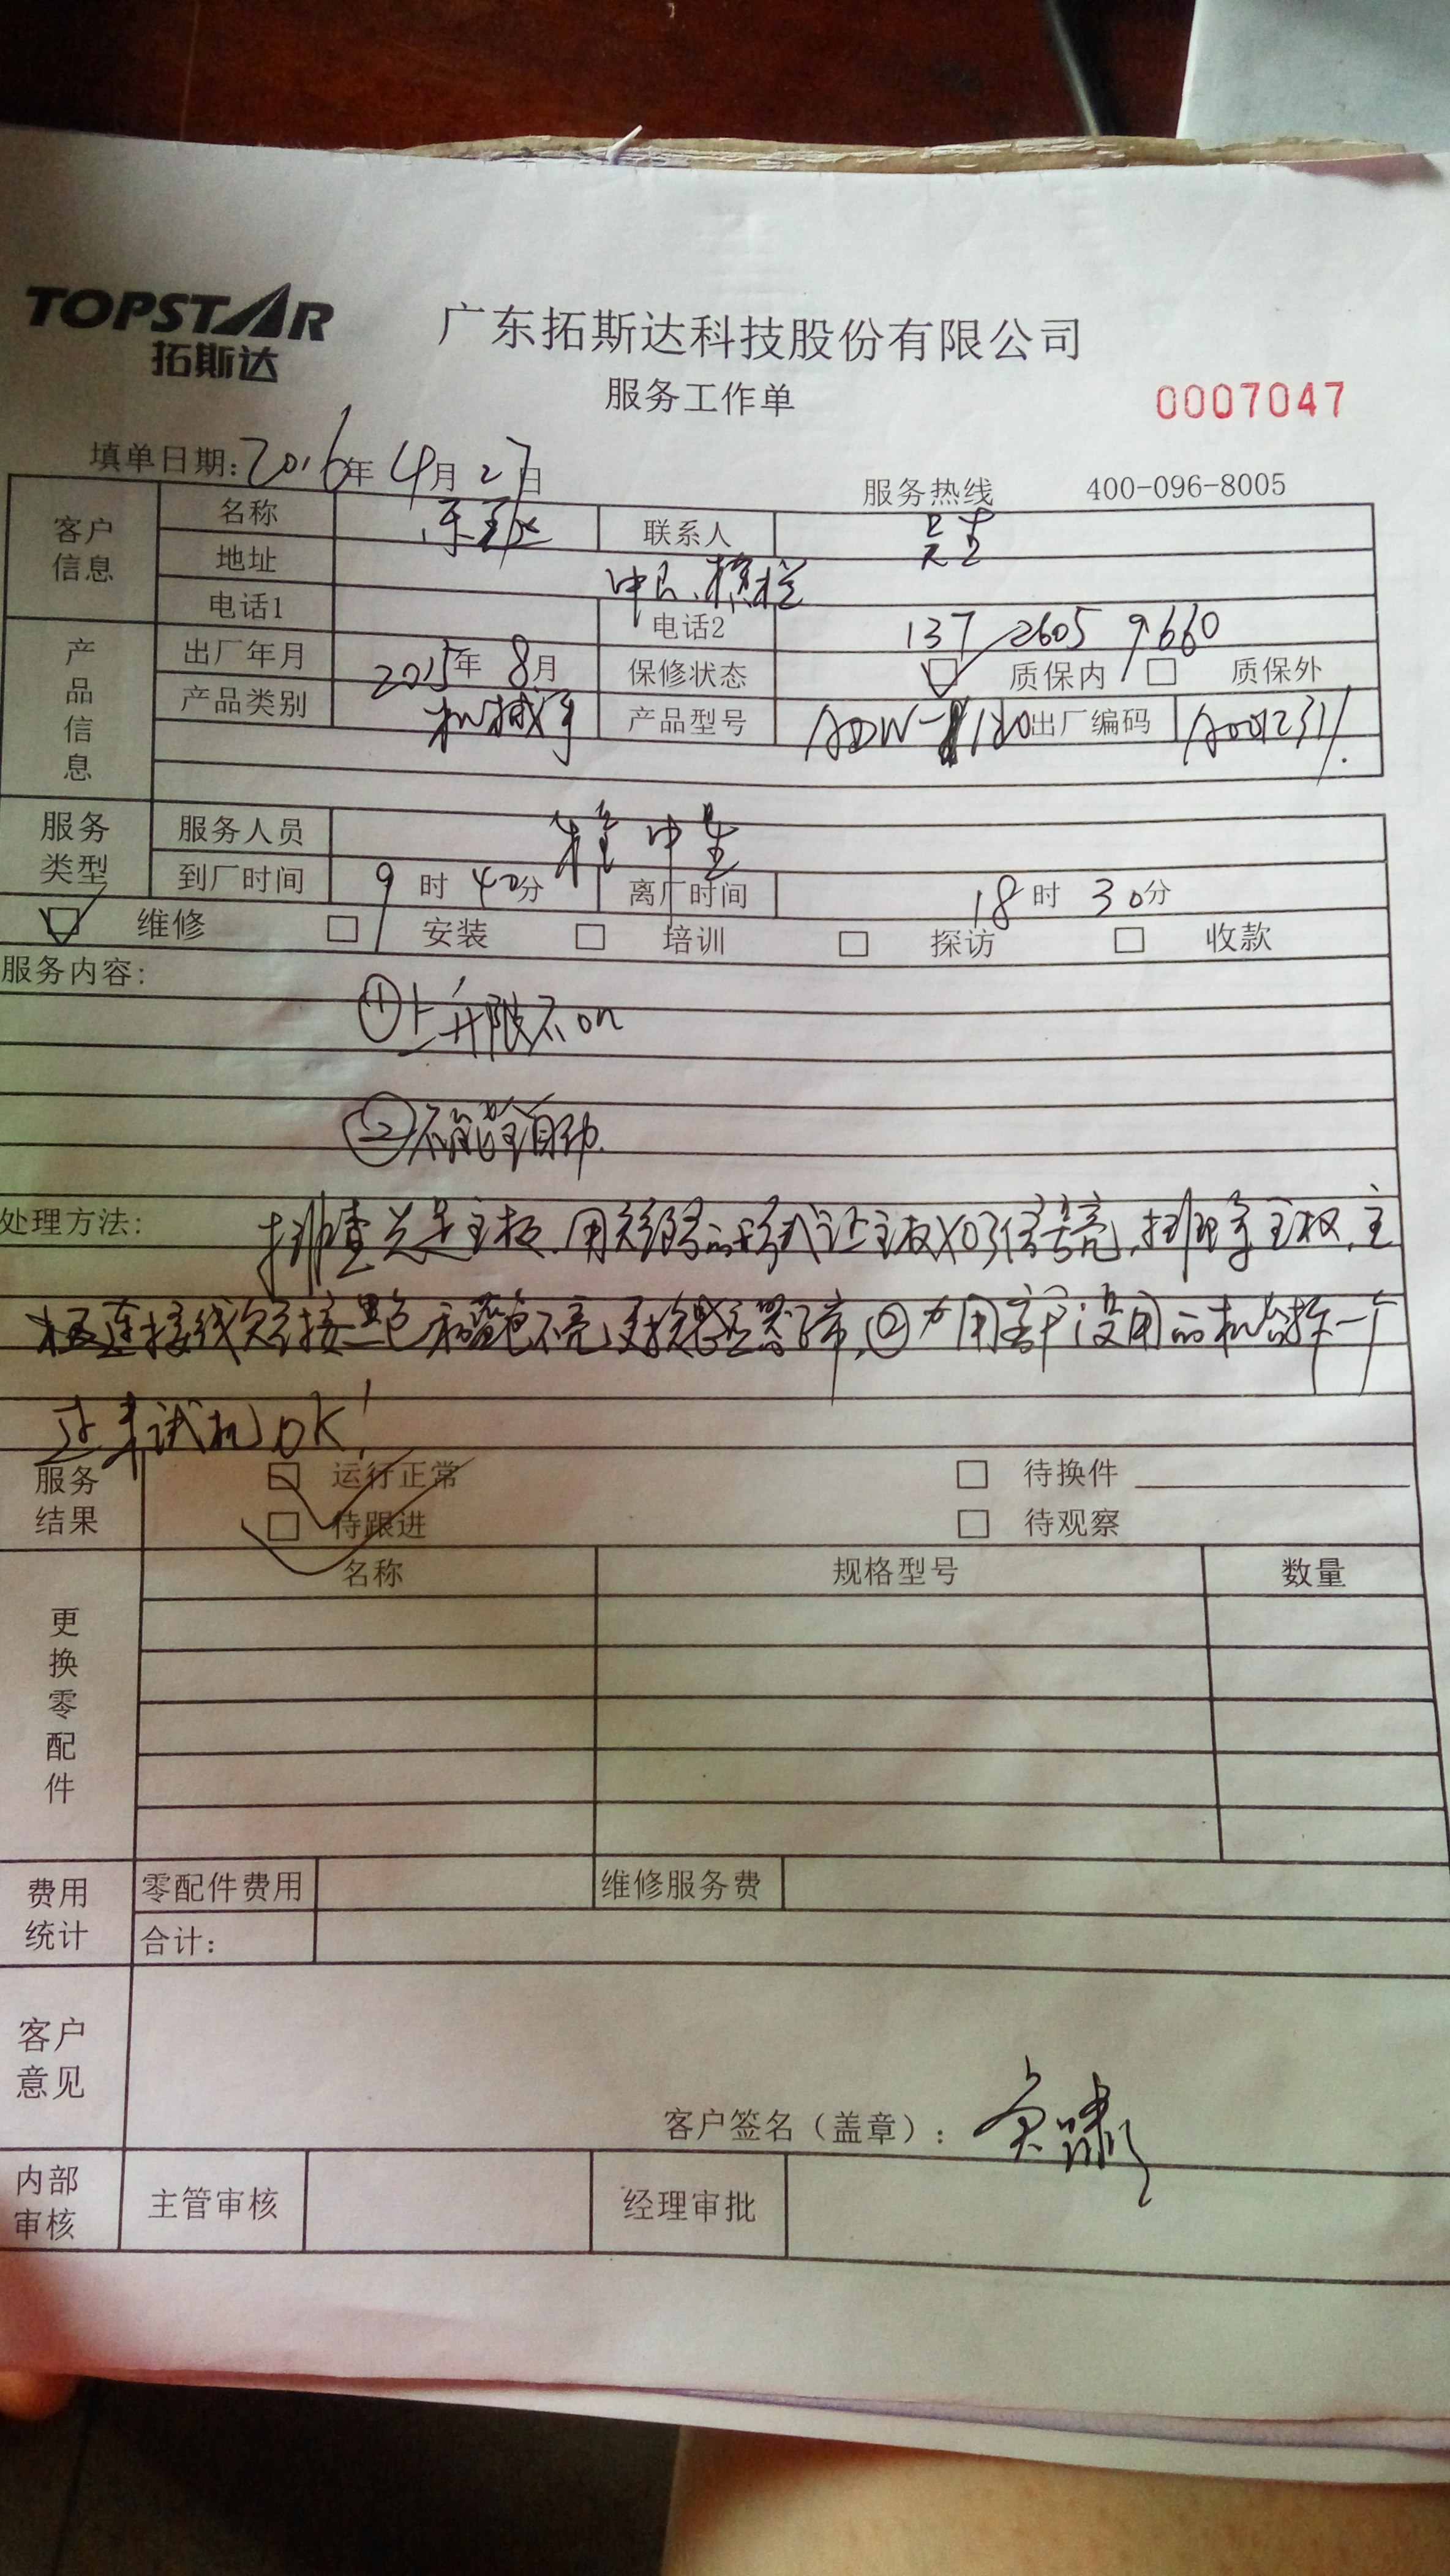 TOPSTAR
拓斯达
广东拓斯达科技股份有限公司
服务工作单
0007047
填单日期:2016年4月27日
服务热线 400-096-8005
客户信息
名称 联系人
地址 中山、横栏
电话1 电话2 137 2605 9660
产品信息
出厂年月 2015年8月 保修状态 质保内 质保外
产品类别 机械手 产品型号 出厂编码
服务类型
服务人员
到厂时间 9时40分 离厂时间 18时30分
维修 安装 培训 探访 收款
服务内容:
①上升限不on
②不能全自动.
处理方法: 排查是主板,用短路的形式让主板X03信号亮,排除主板,主
板连接线短接黑色和蓝色不亮,更换感应器正常,② 用客户没用的机台拆一个
过来试机OK!
服务结果
运行正常 待换件
待跟进 待观察
更换零配件
名称 规格型号 数量
费用统计
零配件费用 维修服务费
合计:
客户意见
客户签名(盖章):
内部审核
主管审核 经理审批